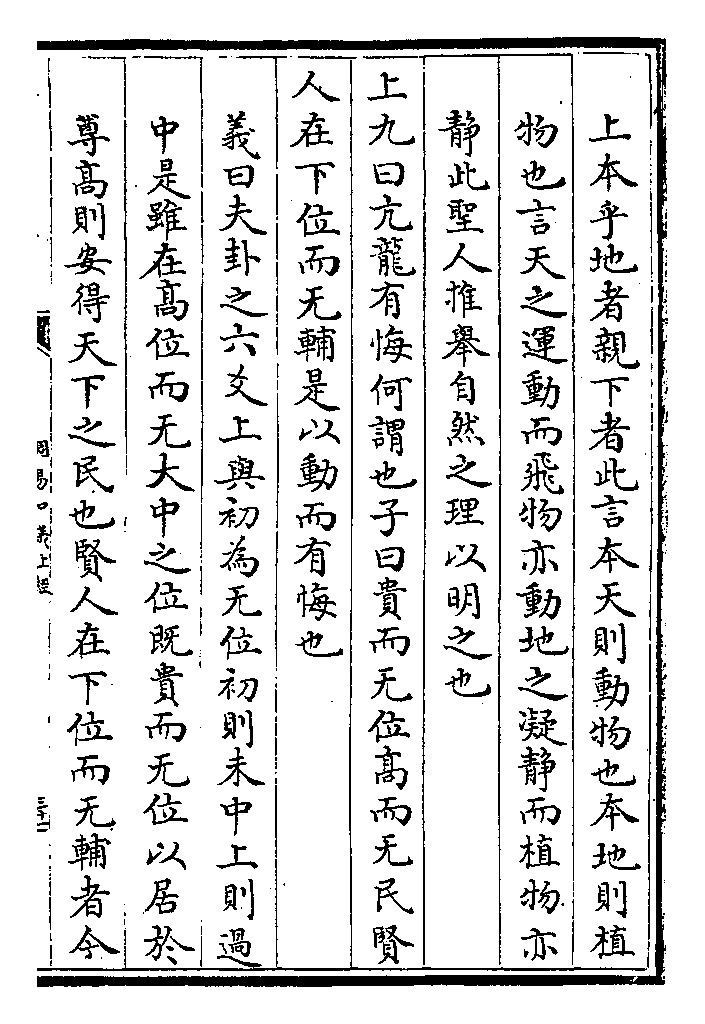 上本乎地者親下者此言本天則動物也本地則植
物也言天之運動而飛物亦動地之凝静而植物亦
静此聖人推舉自然之理以明之也
上九曰亢龍有悔何謂也子曰貴而无位髙而无民賢
人在下位而无輔是以動而有悔也
義曰夫卦之六爻上與初為无位初則未中上則過
中是雖在髙位而无大中之位既貴而无位以居於
尊髙則安得天下之民也賢人在下位而无輔者今
周易口義上經